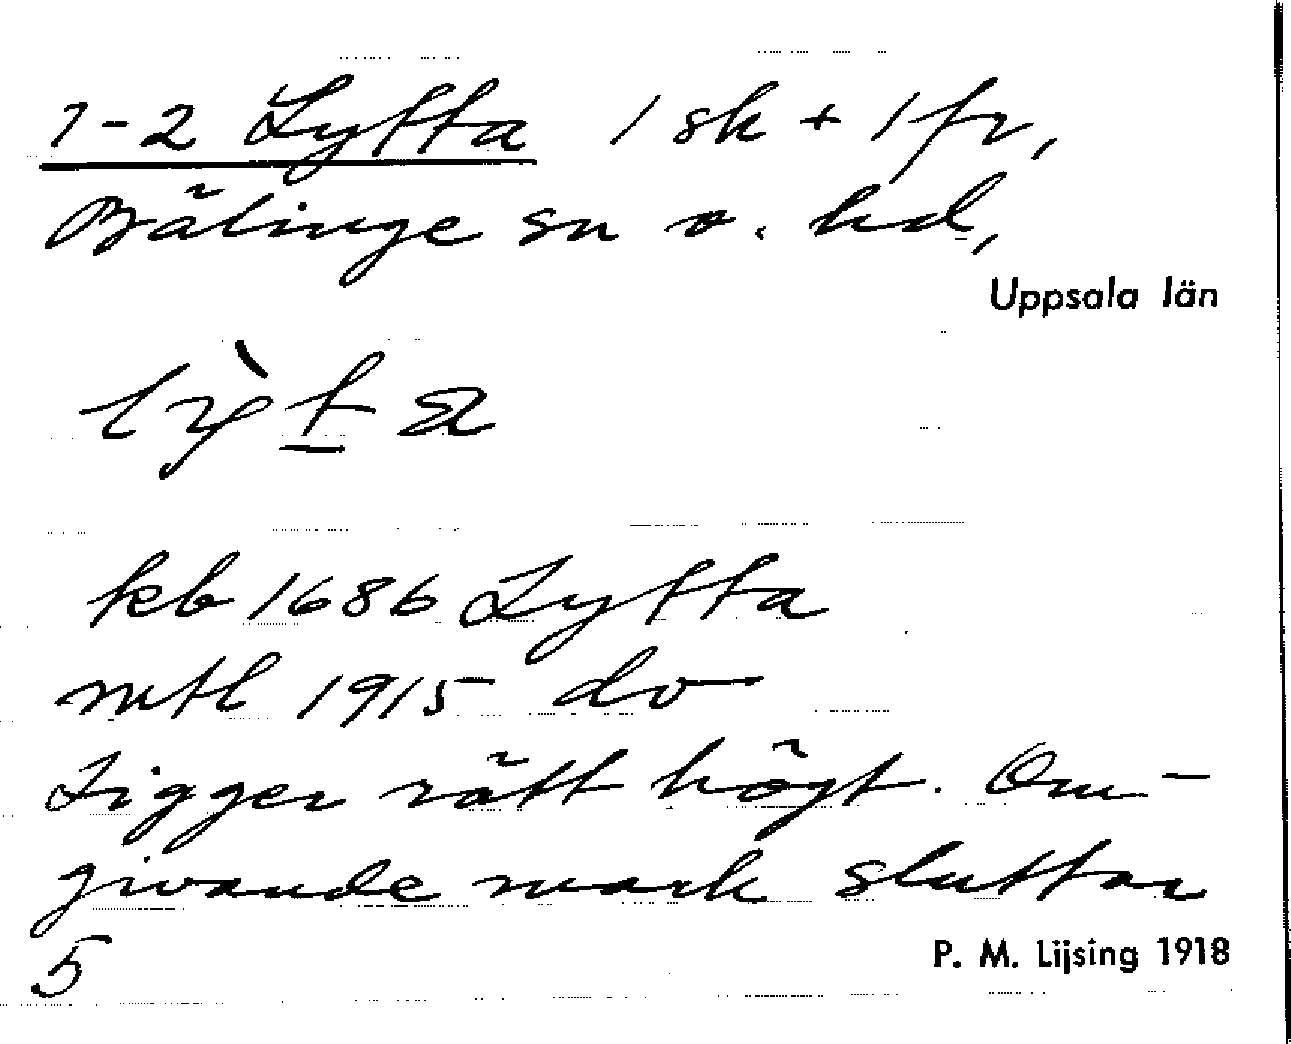 1-2 Lytta 1 sk + 1 fr,
Bälinge sn o. hd,
Uppsala län
lỳt̲a
kb 1686 Lytta
mtl 1915 do
Ligger rätt högt. Om-
givande mark sluttar
5
P. M. Lijsing 1918